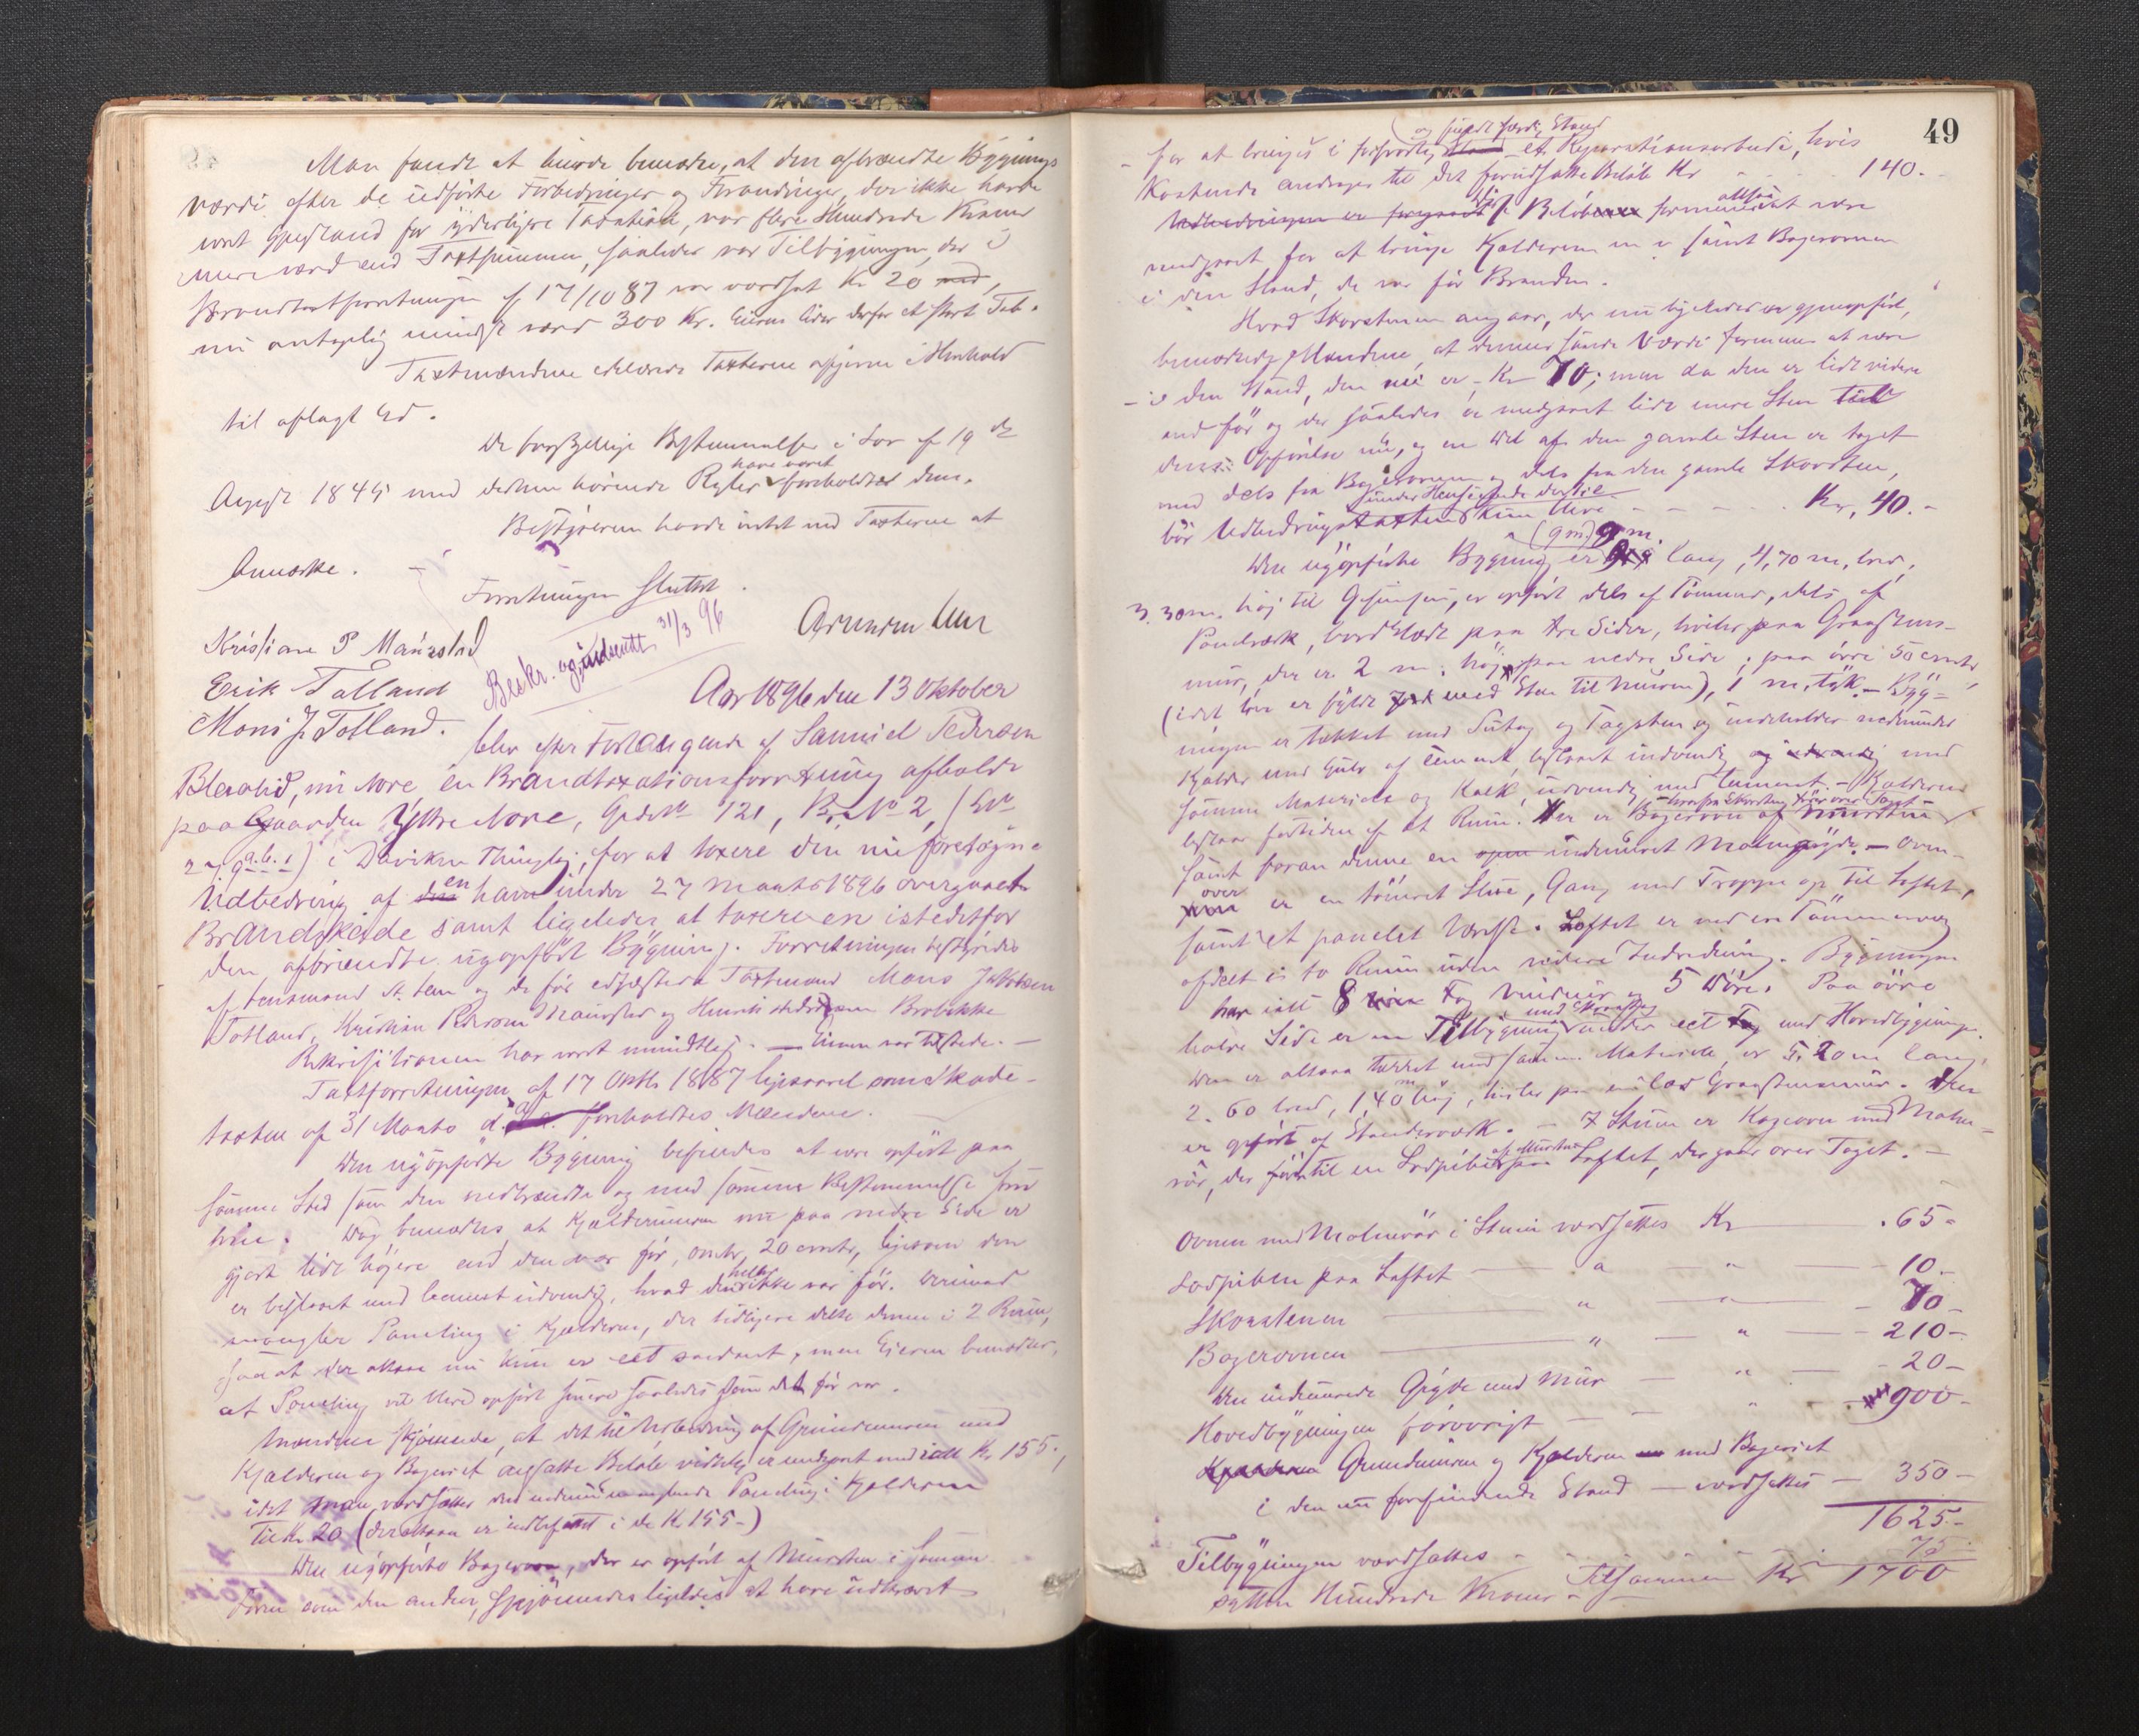 Man fandt at burde bemærke, at den afbrændte Bygnings
værdi efter de udførte Forbedringer og Forandringer, der ikke havde
været Gjenstand for yderligere Taxation, var flere Hundrede Kroner
mere værd end Taxtsummen, saaledes var Tilbygningen, der i
Brandtaxtforretningen af 17/10 87 var værdsat Kr 20
nu antagelig mindst værd 300 Kr. Eieren lider derfor et stort Tab.
Taxtmændene erklærede Taxterne afgivne i Henhold
til aflagt Ed.
De forskjellige Bestemmelser i Lov af 19de
August 1845 med dertil hørende Regler have været foreholdtes dem.
Bestyreren havde intet ved Taxterne at
bemærke.
Forretningen sluttet.
Kristian P Maurstad
Erik Totland
Mons J. Totland.
Beskr. og indsendt 31/3 96
Aar 1896 den 13 Oktober
blev efter Forlangende af Samuel Pedersen
Blaalid, nu Nore en Brandtaxationsforretning afholdt
paa Gaarden Yttre Nore, Grds No 121, Br. No 2,
i Daviken Thinglag, for at taxere den nu foretagne
Udbedring af en ham under 27 Marts 1896 overgaaet
Brandskade samt ligeledes at taxere en istedetfor
den afbrændte nyopført Bygning. Forretningen bestyredes
af Lensmand og de før edfæstede Taxtmænd Mons Jakobsen
Totland, Kristian Pedersen Maurstad og Henrik Brobakke
Rekvisitionen har været mundtlig. – Eieren var tilstede. –
Taxtforretningen af 17 Oktbr 1887 ligesaavel som Skade-
taxten af 31 Marts d. a. foreholdtes Mændene.
Den nyopførte Bygning befindes at være opført paa
samme Sted som den nedbrændte og med samme Bestemmelse som
hin. Dog bemærkes, at Kjældermuren nu paa nedre Side er
gjort lidt højere end den var før, omtr. 20 cmtr, ligesom den
er beslaaet med Cement udvendig, hvad den heller ikke var før. Derimod
mangler Paneling i Kjælderen, der tidligere delte denne i 2 Rum,
saa at der altsaa nu kun er eet saadant, men Eieren bemærker,
at Paneling vil blive opført senere saaledes som det før var.
Mændene skjønnede, at det til Udbedring af Grundmuren med
Kjælderen og Bageriet ansatte Beløb virkelig er medgaaet med ialt Kr 155.,
idet man værdsætter den endnu manglende Paneling i Kjælderen
til Kr. 20 (der altsaa er indbefattet i de Kr 155-)
Den nyopførte Bagerovn, der er opført af Mursten i samme
Form som den anden, skjønnedes ligeledes at have udkrævet
49
og færdig Stand
for at bringes i forsvarlig et Reparationsarbeide, hvis
Kostende andrager til det forudsatte Beløb Kr 140.-
Beløb formenes altsaa at være
medgaaet for at bringe Kjælderen samt Bagerovnen
i den Stand, de var før Branden.
Hvad Skorstenen angaar, der nu ligeledes er gjenopført,
bemærkede Mændene, at dennes sande Værdi formenes at være
i den Stand, den nu er, Kr 70; men da den er lidt videre
end før og der saaledes er medgaaet lidt mere Sten til
dens Opførelse nu, og en Del af den gamle Sten er taget
med dels fra Bagerovnen og dels fra den gamle Skorsten,
bør Udbedringstaxten under Hensigende dertil kun blive - - - - Kr, 40.-
(9 m) 9 m.
Den nyopførte Bygning er lang, 4,70 m, bred,
3.30 m. høj til Gesimsen, er opført dels af Tømmer, dels af
Panelværk, bordklædt paa tre Sider, hviler paa Graastens-
mur, der er 2 m. høj paa nedre Side, paa øvre 50 cmtr,
(idet her er fyldt med Sten til Muren), 1 m. tyk. - Byg-
ningen er tækket med Sutag og Tagsten og indeholder nedunder
Kjælder med Gulv af Cement, beslaaet indvendig med
samme Materiale og Kalk, udvendig med Cement. - Kjælderen
bestaar fortiden af et Rum. Her er Bagerovn af Mursten
samt foran denne en indmuret Malmgryde. – Oven-
over er en tømret Stue, Gang med Trappe op til Loftet,
samt et panelet Værelse. Loftet er ved en Tømmervæg
afdelt i to Rum uden videre Indredning. Bygningen
har ialt 8 Fag Vinduer og 5 Døre. Paa øvre
halve Side er en Tilbygning med Skraatag under eet med Hovedbygningen.
Den er altsaa tækket med samme Materiale, er 5.20 m lang,
2.60 bred, 1,40 m høj, hviler paa en lav Graastensmur. Den
er opført af Stenderværk. – I Stuen er Kogeovn med Malm-
rør, der fører til en Sodpibe af Mursten paa Loftet, der gaar over Taget. –
Ovnen med Malmrør i Stuen værdsættes Kr .65-
Sodpiben paa Loftet - 10.-
Skorstenen - 70-
Bagerovnen - 210-
Den indmurede Gryde med Mur - 20-
Hovedbygningen forøvrigt - 900-
Grundmuren og Kjælderen med Bageriet
i den nu forefindende Stand - værdsættes - 350-
1625-
Tilbygningen værdsættes - 75-
Tilsammen Kr 1700
sytten Hundrede Kroner -